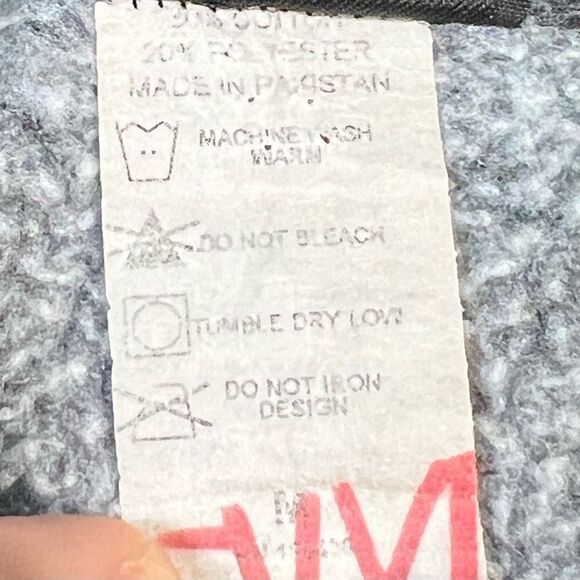 20% POLYESTER
MADE IN PAKISTAN
MACHINE WASH
WARM
DO NOT BLEACH
TUMBLE DRY LOW
DO NOT IRON
DESIGN